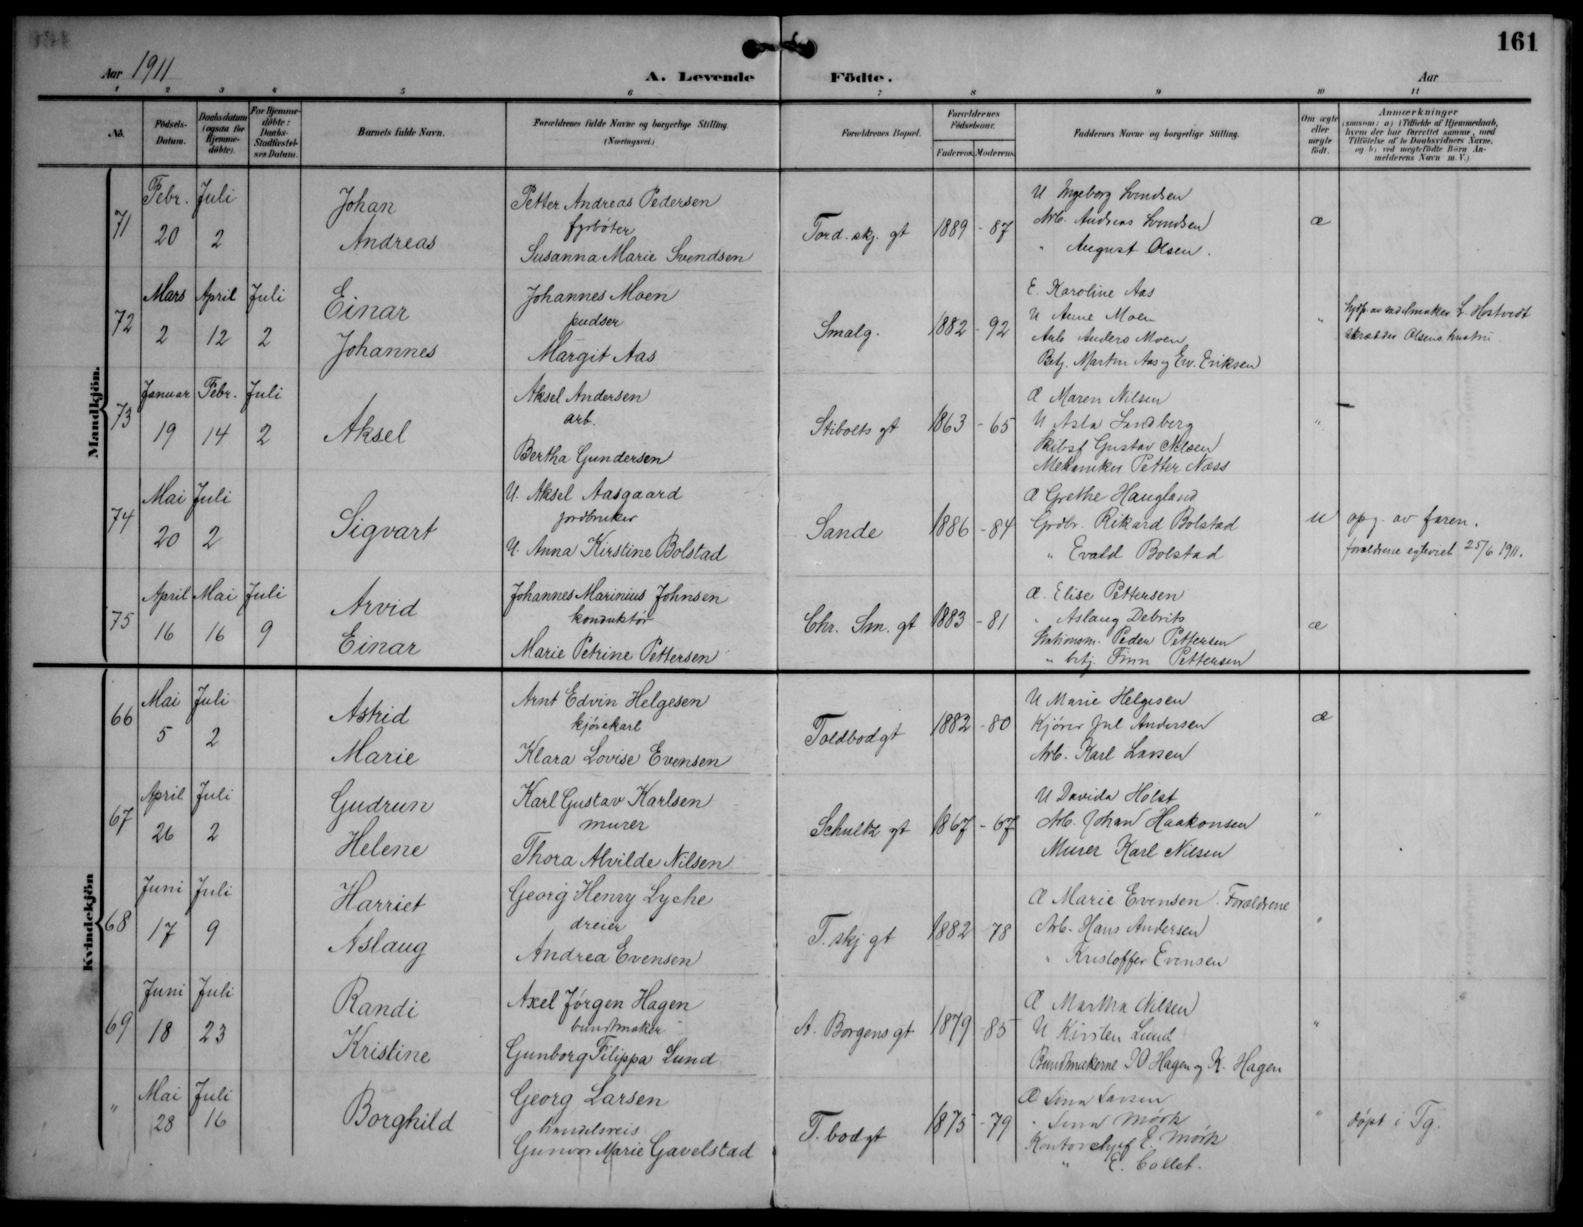 161
Aar 1911
A. Levende Födte.
Aar
1 2 3 4 5 6 7 8 9 10 11
No.
Födsels-Datum.
Daabsdatum (ogsaa for Hjemmedöbte).
For Hjemmedöbte: Daabs-Stadfæstelses Datum.
Barnets fulde Navn.
Forældrenes fulde Navne og borgerlige Stilling. (Næringsvei.)
Forældrenes Bopæl.
Forældrenes Födselsaar.
Faderens. Moderens.
Faddernes Navne og borgerlige Stilling.
Om ægte eller uægte födt.
Anmærkninger
(saasom: a) i Tilfælde af Hjemmedaab, hvem der har forrettet samme, med Tilföielse af to Daabsvidners Navne, og b) ved uægtefödte Börn Anmelderens Navn m. V.)
Mandkjön.
71
Febr. 20
Juli 2
Johan Andreas
Petter Andreas Pedersen
fyrbøter
Susanna Marie Svendsen
Tord.skj. gt
1889 - 87
U Ingeborg Svendsen
Arb. Andreas Svendsen
" August Olsen.
æ
72
Mars 2
April 12
Juli 2
Einar Johannes
Johannes Moen
pudser
Margit Aas
Smalg.
1882 - 92
E. Karoline Aas
U Anne Moen
Arb Anders Moen
Betj. Martin Aas og Ew. Eriksen
"
hjdp av sadelmaker L. Hostvedt
skrædder Olsens hustru
73
Januar 19
Febr. 14
Juli 2
Aksel
Aksel Andersen
arb.
Bertha Gundersen
Stibolts gt
1863 - 65
Æ Maren Nilsen
U Asta Sandberg
Skibsf Gustav Nilsen
Mekaniker Petter Næss
"
74
Mai 20
Juli 2
Sigvart
U. Aksel Aasgaard
jordbruker
U. Anna Kirstine Bolstad
Sande
1886 - 84
Æ Grethe Haugland
Grdbr. Rikard Bolstad
" Evald Bolstad
u
opg. av faren.
forældrene egteviet 25/6 1911.
75
April 16
Mai 16
Juli 9
Arvid Einar
Johannes Marinius Johnsen
konduktør
Marie Petrine Pettersen
Chr. Sm. gt
1883 - 81
Æ. Elise Pettersen
" Aslaug Debrits
Stationsm. Peder Pettersen
" betj. Finn Pettersen
æ
Kvindekjön
66
Mai 5
Juli 2
Astrid Marie
Arnt Edvin Helgesen
kjørekarl
Klara Lovise Evensen
Toldbodgt
1882 - 80
U Marie Helgesen
Kjører Jul Andersen
Arb. Karl Larsen
æ
67
April 26
Juli 2
Gudrun Helene
Karl Gustav Karlsen
murer
Thora Alvilde Nilsen
Schultz gt
1867 - 67
U Davida Holst
Arb. Johan Haakonsen
Murer Karl Nilsen
"
68
Juni 17
Juli 9
Harriet Aslaug
Georg Henry Lyche
dreier
Andrea Evensen
T. skj gt
1882 - 78
Æ Marie Evensen Forældrene
Arb. Hans Andersen
" Kristoffer Evensen
"
69
Juni 18
Juli 23
Randi Kristine
Axel Jørgen Hagen
buntmaker
Gunborg Filippa Lund
A. Borgens gt
1879 - 85
Æ Martha Nilsen
U Kirsten Lund
Buntmakerne I O Hagen og K. Hagen
"
"
Mai 28
Juli 16
Borghild
Georg Larsen
handelsreis
Gunvor Marie Gavelstad
T. bodgt
1875 - 79
Æ Lina Larsen
" Mørk
Kontorchef E. Mørk
" E. Collet.
"
døpt i Tg.